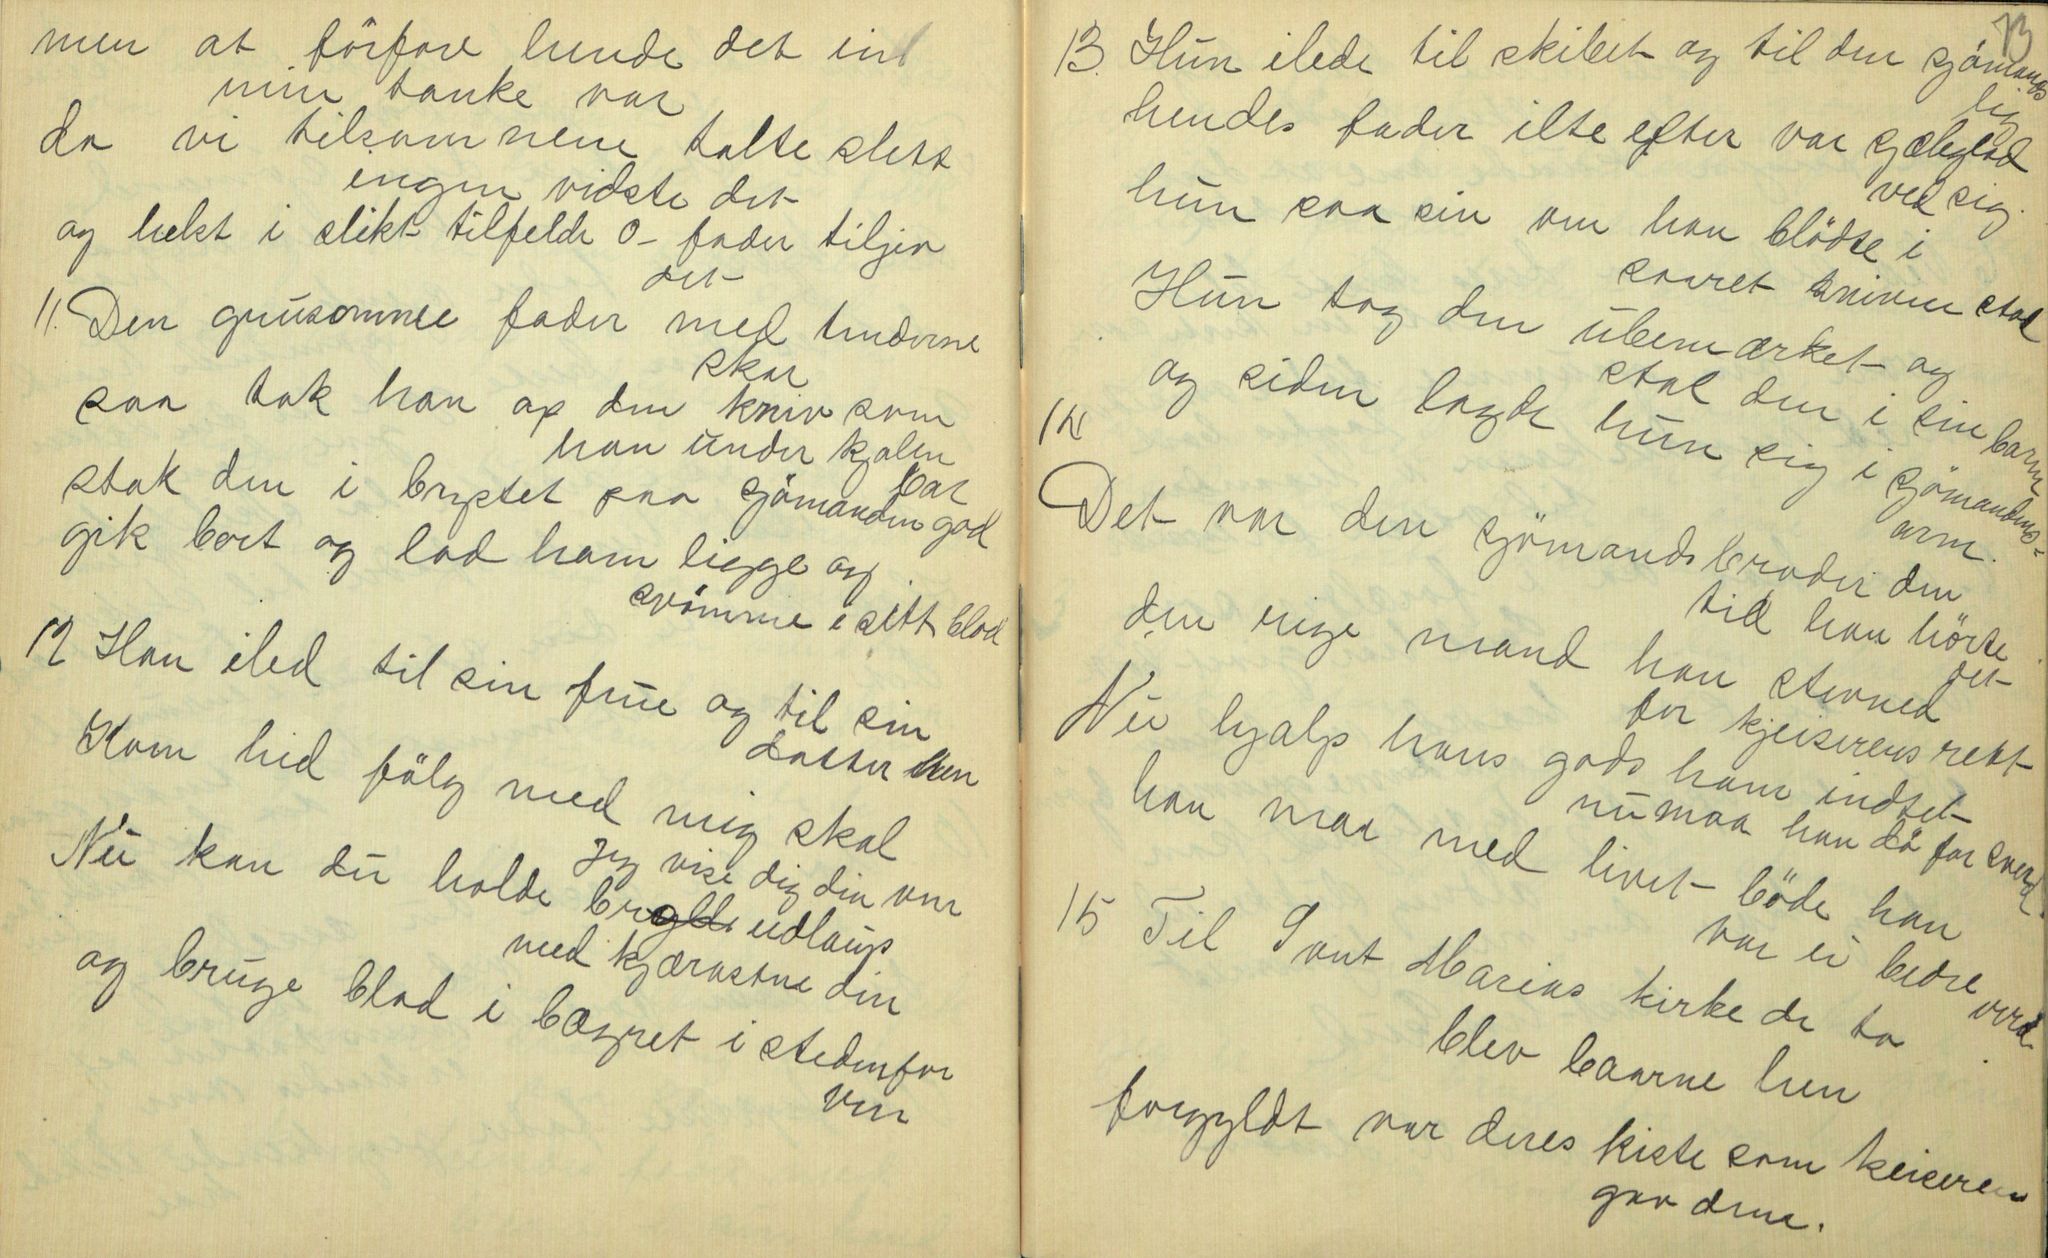 men at forföre hende det ind
min tanke var
da vi tilsammene talte slett
ingen vidste det
og helst i slikt tilfelde o- fader tilgiv
det
11. Den grusomme fader med tenderne
skar
saa tok han op den kniv som
han under kjolen
bar
stak den i brystet paa sjömanden god
gik bort og lod ham ligge og
svömme i sitt blod
12 Han iled til sin frue og til sin
datter hen
Kom hid fölg med mig skal
jeg vise dig din ven
Nu kan du holde udlaup
med kjærastne din
og bruge blod i bægret i stedenfor
vin
13
13. Hun ilede til skibet og til den sjömands
lig
hendes fader ilte efter var sjæleglad
ved sig.
hun saa sin ven han blödte i
saaret kniven stod
Hun tog den ubemærket og
stak den i sin barm
og siden lagde hun sig i sjömandens-
arm.
14
Det var den sjömands broder den
tid han hörte
det
den rige mand han stevned
for kjeiserens rett
Nu hjalp hans gods ham indtet
nu maa han dö for sverd
han maa med livet böde han
var ei bedre verd.
15 Til Sant Marias kirke de to
blev baarne hen
forgyldt var deres kiste som keiseren
gav dem.